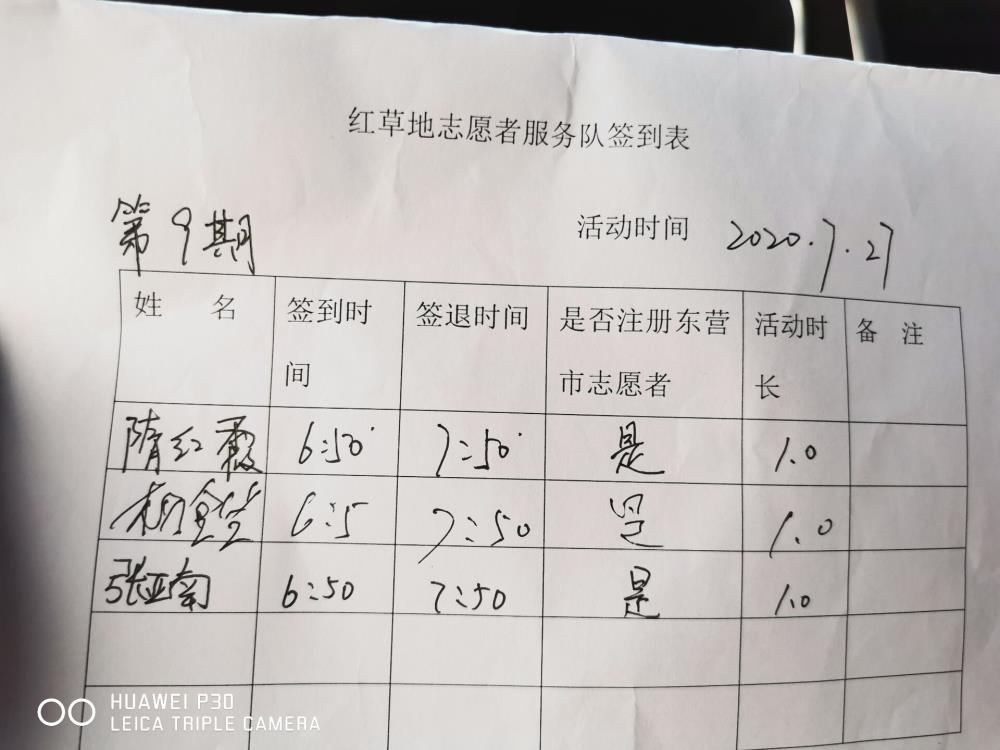 红草地志愿者服务队签到表
第9期 活动时间 2020.7.27
姓 名 签到时间 签退时间 是否注册东营市志愿者 活动时长 备 注
隋红霞 6:50 7:50 是 1.0
6:5 7:50 是 1.0
张亚南 6:50 7:50 是 1.0
HUAWEI P30
LEICA TRIPLE CAMERA